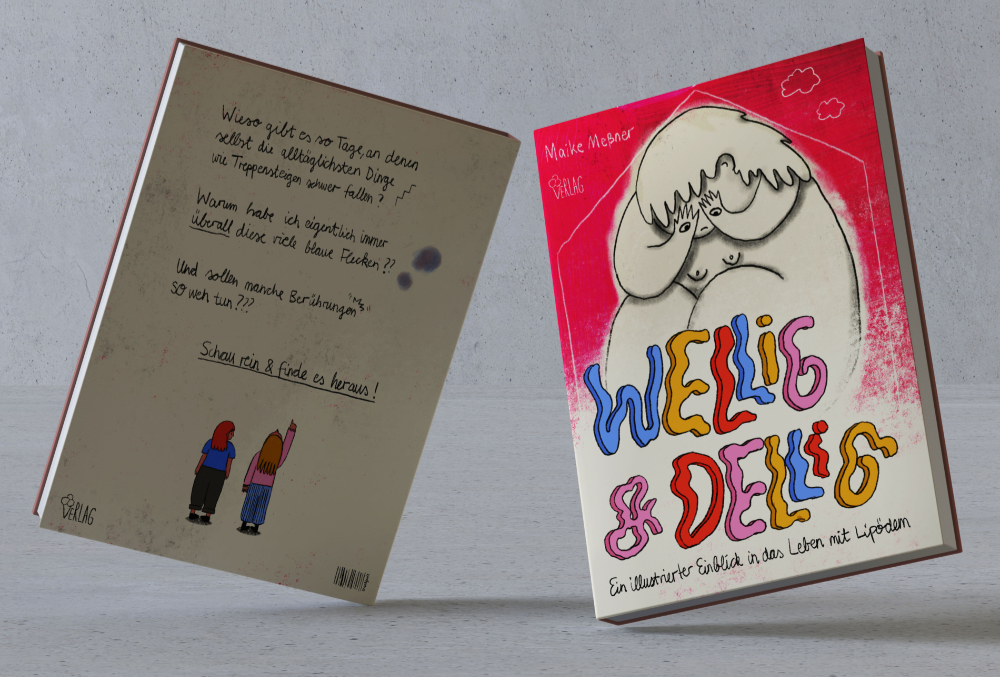 Wieso gibt es so Tage, an denen
selbst die alltäglichsten Dinge
wie Treppensteigen schwer fallen?
Warum habe ich eigentlich immer
überall diese viele blaue Flecken??
Und sollen manche Berührungen
so weh tun???
Schau rein & finde es heraus!
VERLAG
Maike Meßner
VERLAG
WELLiG
& DELLiG
Ein illustrierter Einblick in das Leben mit Lipödem